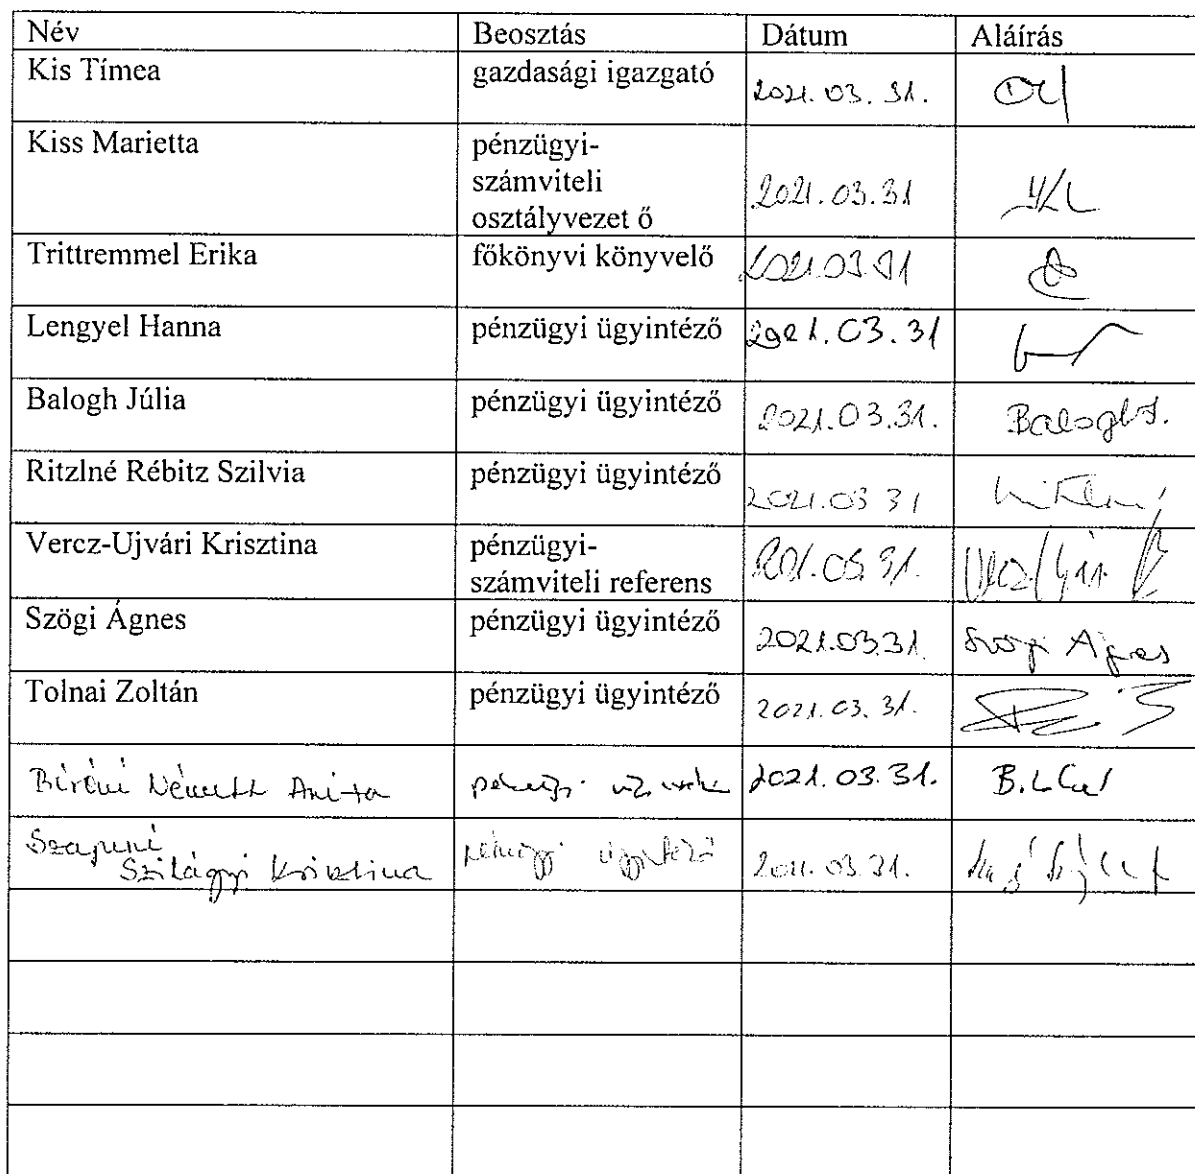 Név Beosztás Dátum Aláírás
Kis Tímea gazdasági igazgató 2021. 03. 31.
Kiss Marietta pénzügyi-
számviteli
osztályvezet ő 2021.03.31
Trittremmel Erika főkönyvi könyvelő 2021.03.31
Lengyel Hanna pénzügyi ügyintéző 2021.03.31
Balogh Júlia pénzügyi ügyintéző 2021.03.31. Balogh J.
Ritzlné Rébitz Szilvia pénzügyi ügyintéző 2021.03 31
Vercz-Ujvári Krisztina pénzügyi-
számviteli referens
Szögi Ágnes pénzügyi ügyintéző 2021.03.31. Szögi Ágnes
Tolnai Zoltán pénzügyi ügyintéző 2021.03.31.
Németh Anita 2021.03.31.
Szilágyi Krisztina pénzügyi ügyintéző